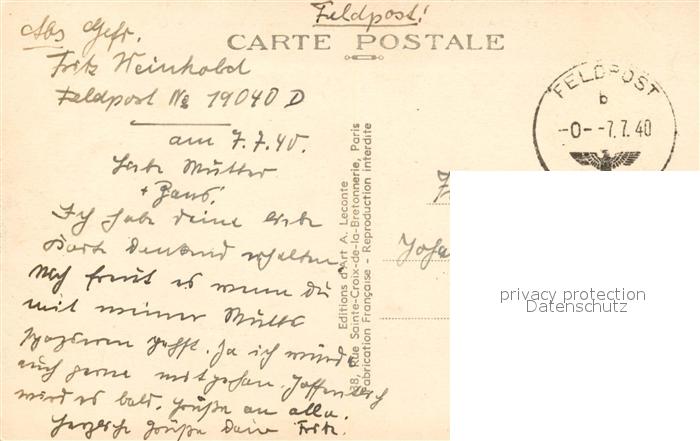 Feldpost!
Abs Gefr.
CARTE POSTALE
Fritz Weinhold
Feldpost No 19040 D
am 7.7.40.
Liebe Mutter
+ Hans!
Ich habe deine liebe
Karte dankend erhalten.
Mich freut es wenn du
mit meiner Mutti
spazieren gehst. Ja ich würde
auch gerne mitgehen. Hoffentlich
wird es bald. Grüße an alle.
Herzliche Grüße Dein Fritz.
Editions d'Art A. Leconte
38, Rue Sainte-Croix-de-la-Bretonnerie, Paris
Fabrication Française - Reproduction interdite
FELDPOST
b
-0- -7.7.40
privacy protection
Datenschutz